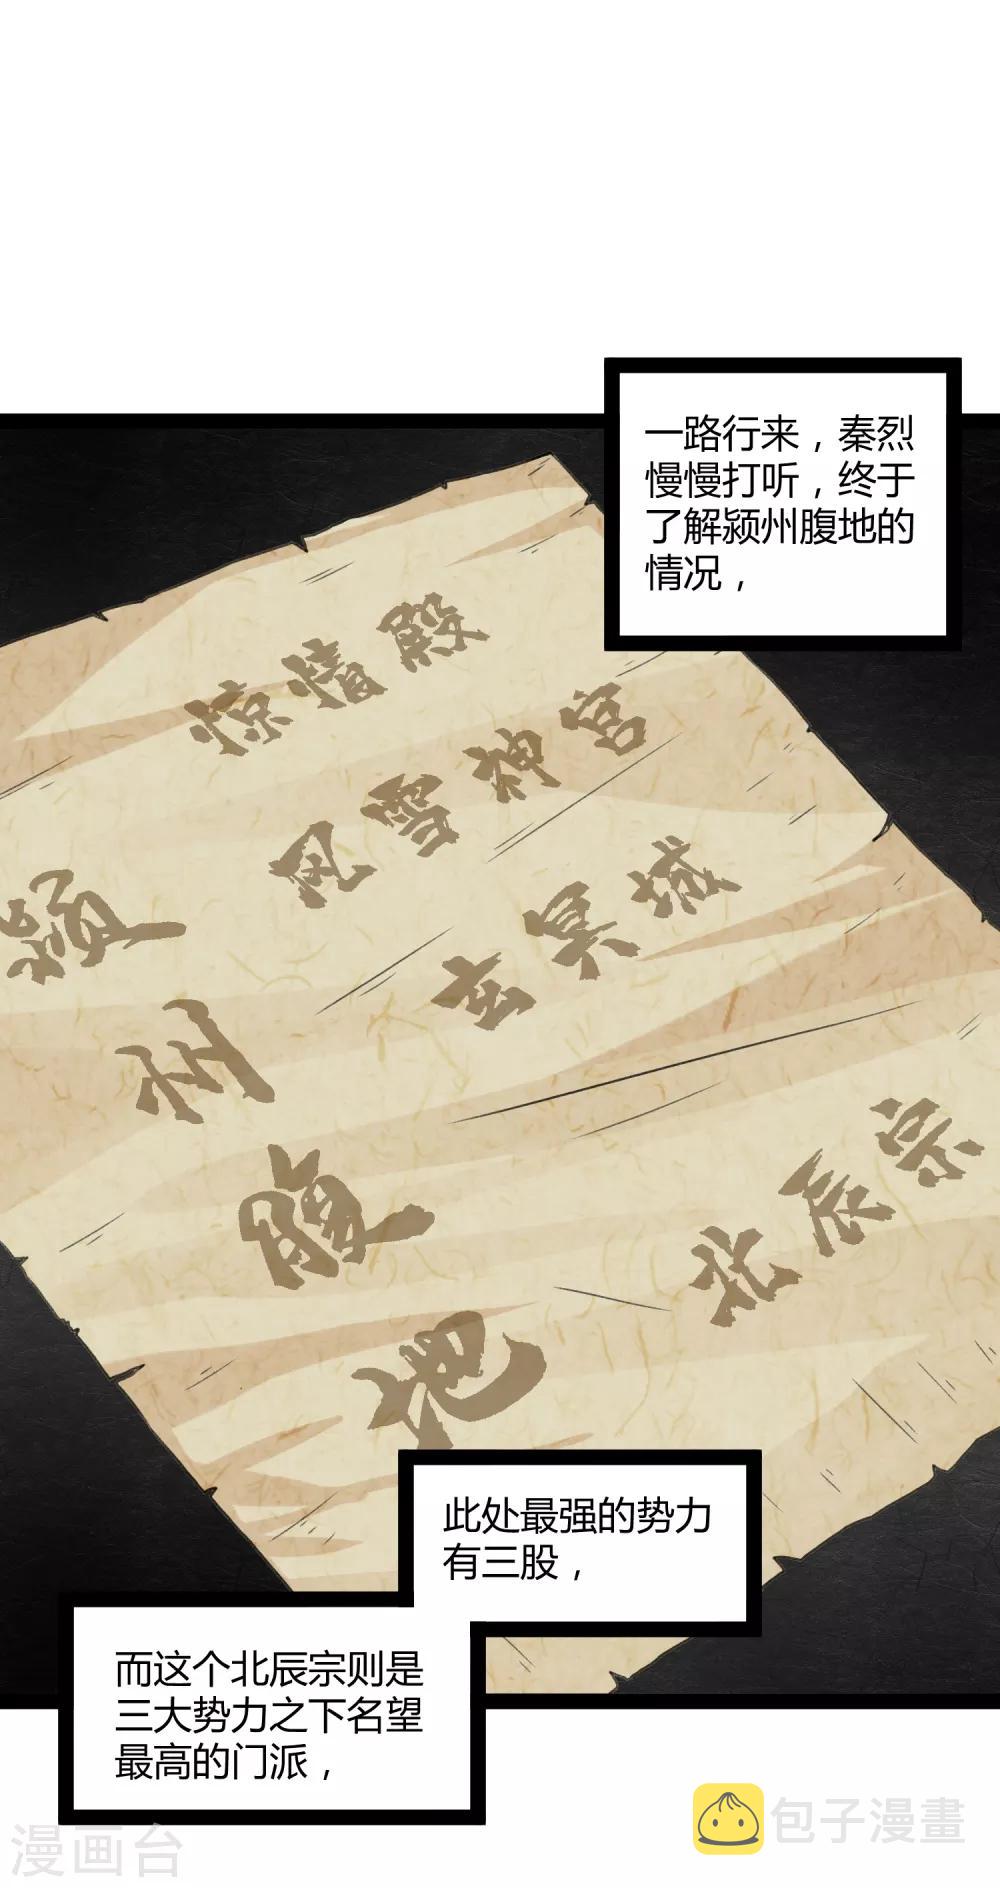 一路行来，秦烈
慢慢打听，终于
了解颍州腹地的
情况，
惊情殿
风雪神宫
玄冥域
颍州腹地
北辰宗
此处最强的势力
有三股，
而这个北辰宗则是
三大势力之下名望
最高的门派，
漫画台
包子漫畫